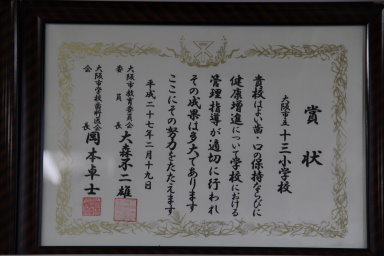 賞状
大阪市立 十三小学校
貴校はよい歯・口の保持ならびに
健康増進について学校における
管理指導が適切に行われ
その成果は多大であります
ここにその努力をたたえます
平成二十七年二月十九日
大阪市教育委員会
委員長 大森不二雄
大阪市学校歯科医会
会長 岡本卓士